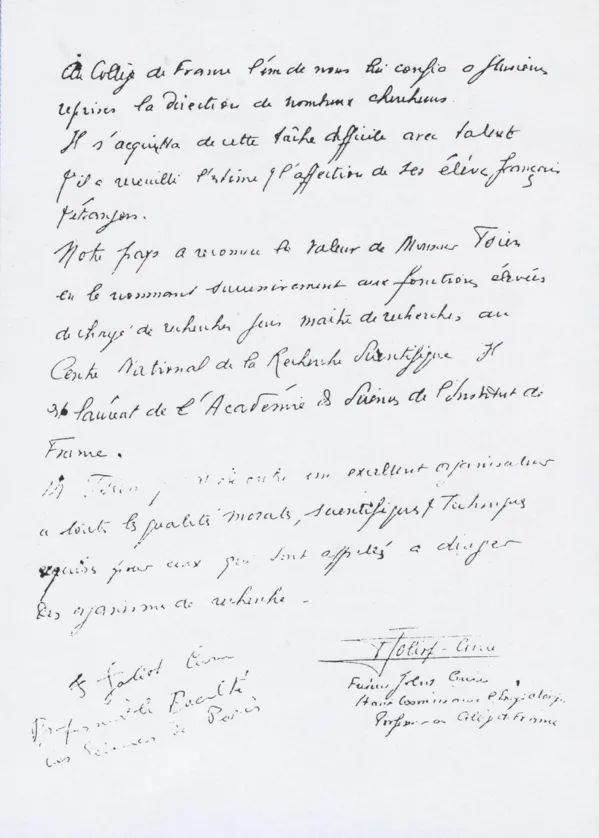 Au Collège de France l'un de nous lui confia à plusieurs
reprises la direction de nombreux chercheurs.
Il s'acquitta de cette tâche difficile avec talent
& il a recueilli l'estime & l'affection de ses élèves français
& étrangers.
Notre pays a reconnu la valeur de Monsieur Tsien
en le nommant successivement aux fonctions élevées
de chargé de recherches puis maître de recherches au
Centre National de la Recherche Scientifique. Il
est lauréat de l'Académie des Sciences de l'Institut de
France.
M Tsien outre un excellent organisateur
a toutes les qualités morales, scientifiques & techniques
requises pour ceux qui sont appelés à diriger
des organismes de recherche.
F Joliot-Curie
I Joliot Curie
Frédéric Joliot Curie
Professeur à la Faculté
Haut Commissaire à l'Energie Atomique
des Sciences de Paris
Professeur au Collège de France